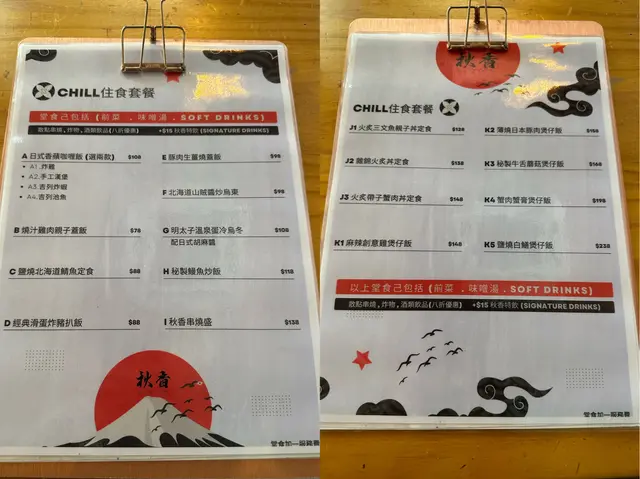 CHILL住食套餐
堂食己包括 (前菜 . 味噌湯 . SOFT DRINKS)
散點串燒 , 炸物 , 酒類飲品 (八折優惠) +$15 秋香特飲 (SIGNATURE DRINKS)
A 日式香蘋咖喱飯 (選兩款) $108
• A1 .炸雞
• A2.手工漢堡
• A3.吉列炸蝦
• A4.吉列池魚
B 燒汁雞肉親子蓋飯 $78
C 鹽燒北海道鯖魚定食 $88
D 經典滑蛋炸豬扒飯 $88
E 豚肉生薑燒蓋飯 $98
F 北海道山賊醬炒烏東 $98
G 明太子溫泉蛋冷烏冬 $108
配日式胡麻醬
H 秘製鰻魚炒飯 $118
I 秋香串燒盛 $138
秋香
堂食加一服務費
秋香
CHILL住食套餐
J1 火炙三文魚親子丼定食 $128
J2 雜錦火炙丼定食 $138
J3 火炙帶子蟹肉丼定食 $148
K1 麻辣創意雞煲仔飯 $148
K2 薄燒日本豚肉煲仔飯 $158
K3 秘製牛舌蘑菇煲仔飯 $168
K4 蟹肉蟹膏煲仔飯 $198
K5 鹽燒白鱔煲仔飯 $238
以上堂食己包括 (前菜 . 味噌湯 . SOFT DRINKS)
散點串燒 , 炸物 , 酒類飲品 (八折優惠) +$15 秋香特飲 (SIGNATURE DRINKS)
堂食加一服務費